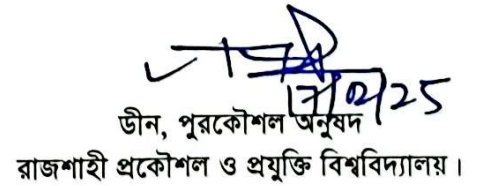 17/02/25
ডীন, পুরকৌশল অনুষদ
রাজশাহী প্রকৌশল ও প্রযুক্তি বিশ্ববিদ্যালয়।